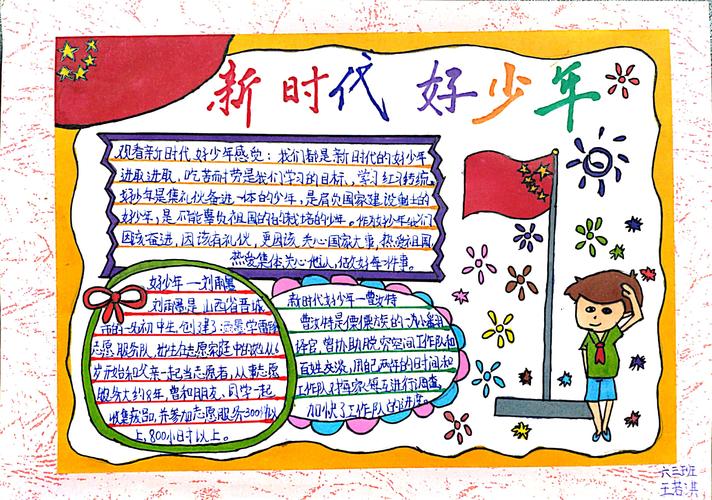 新时代 好少年
观看新时代好少年感觉：我们都是新时代的好少年
进取进取，吃苦耐劳是我们学习的目标，学习红习传统。
好少年是集礼仪奋进一体的少年，是肩负国家建设制土的
好少年，是不能辜负祖国的的栽培的少年。作为好少年我们
因该奋进，因该有礼仪，更因该关心国家大事，热爱祖国
热爱集体，关心他人，做好每一件事。
好少年——刘雨墨
刘雨墨是山西省晋城
市的一名初中生，创建了雨墨学雷锋
志愿服务队，出生在志愿家庭中的她从6
岁开始和父亲一起当志愿者，从事志愿
服务大约8年，曾和朋友、同学一起
收集获品，并参加志愿服务300余次以
上，800小时以上。
新时代好少年—曹汝特
曹汝特是傈僳族的一次小翻
译官，曾协助脱空空间工作队和
百姓交流，用自己两年的时间和
工作队对百家每五进行调查，
加快了工作队的进度。
六三班
王若淇